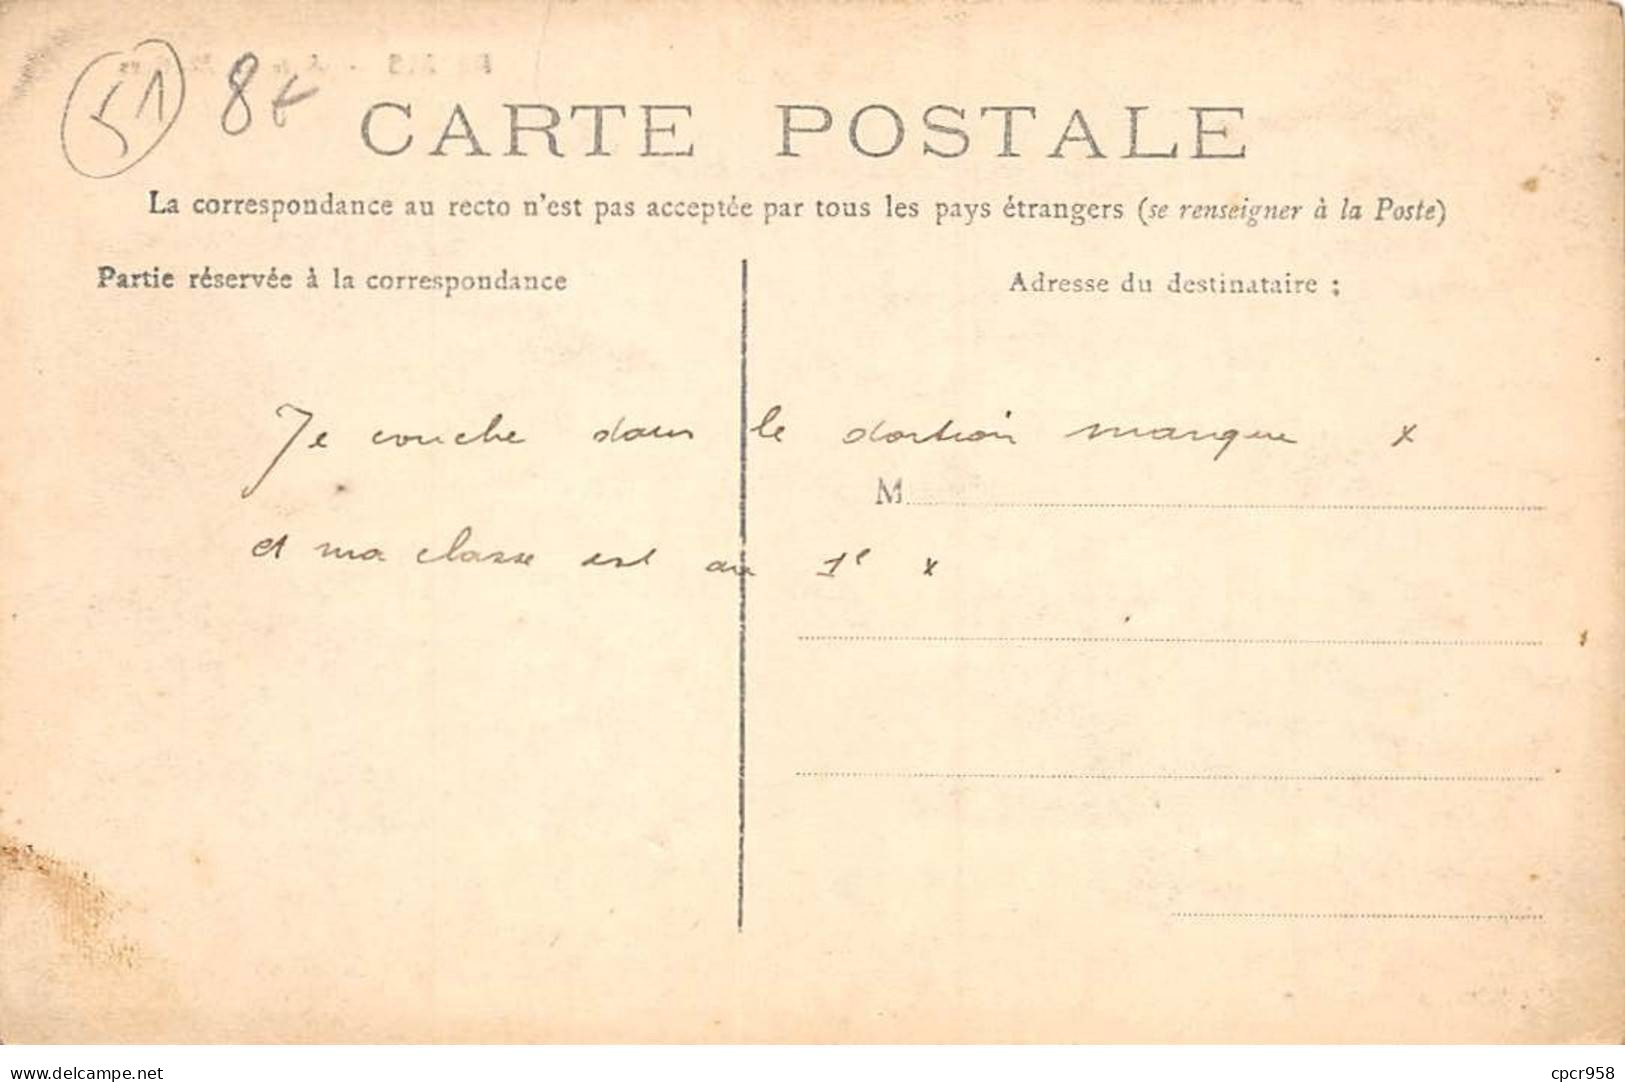 51 8€
CARTE POSTALE
La correspondance au recto n'est pas acceptée par tous les pays étrangers (se renseigner à la Poste)
Partie réservée à la correspondance
Adresse du destinataire :
Je couche dans le dortoir marque x
M
et ma classe est au 1e x
www.delcampe.net
cpcr958